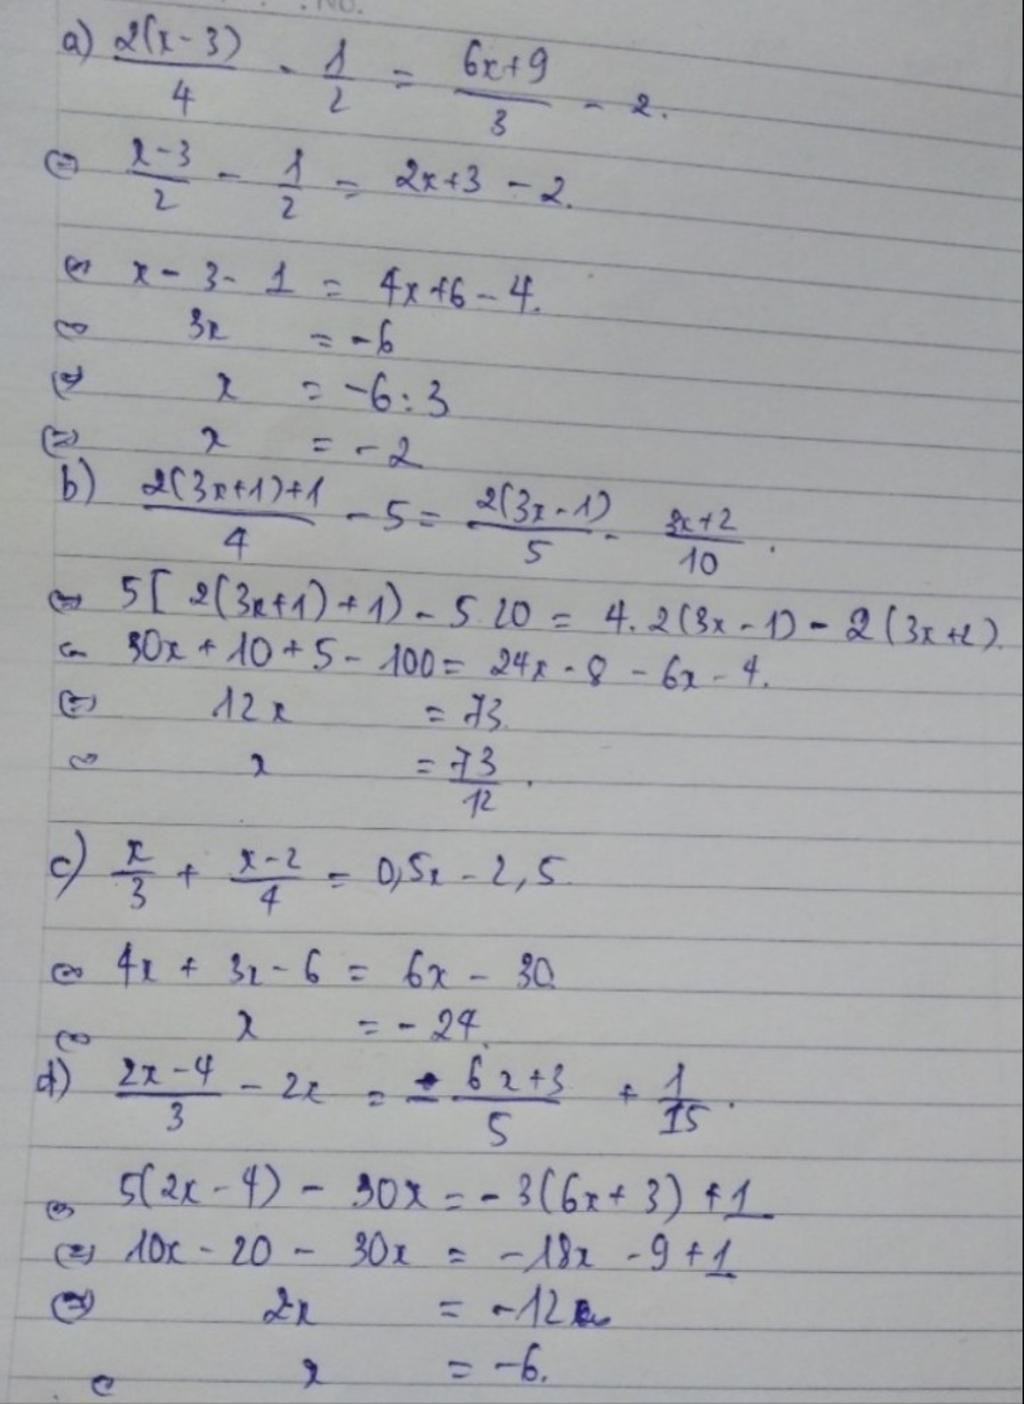 No.
a) \frac{2(x-3)}{4} - \frac{1}{2} = \frac{6x+9}{3} - 2.
⇔ \frac{x-3}{2} - \frac{1}{2} = 2x+3 - 2.
⇔ x - 3 - 1 = 4x+6 - 4.
⇔ 3x = -6
⇔ x = -6 : 3
⇔ x = -2
b) \frac{2(3x+1)+1}{4} - 5 = \frac{2(3x-1)}{5} - \frac{3x+2}{10}.
⇔ 5[2(3x+1)+1) - 5.20 = 4.2(3x-1) - 2(3x+2).
⇔ 30x + 10 + 5 - 100 = 24x - 8 - 6x - 4.
⇔ 12x = 73.
⇔ x = \frac{73}{12}.
c) \frac{x}{3} + \frac{x-2}{4} = 0,5x - 2,5.
⇔ 4x + 3x - 6 = 6x - 30
⇔ x = -24.
d) \frac{2x-4}{3} - 2x = -\frac{6x+3}{5} + \frac{1}{15}.
⇔ 5(2x-4) - 30x = -3(6x+3) + 1
⇔ 10x - 20 - 30x = -18x - 9 + 1
⇔ 2x = -12
⇔ x = -6.